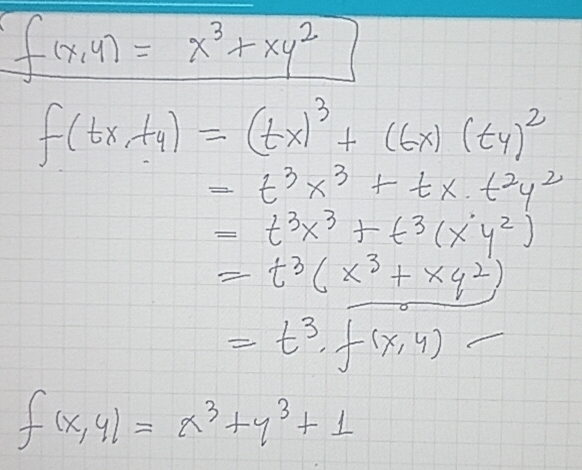 f(x,y) = x³ + xy²
f(tx,ty) = (tx)³ + (tx) (ty)²
= t³x³ + tx . t²y²
= t³x³ + t³(x·y²)
= t³(x³ + xy²)
= t³. f(x,y)
f(x,y) = x³ + y³ + 1